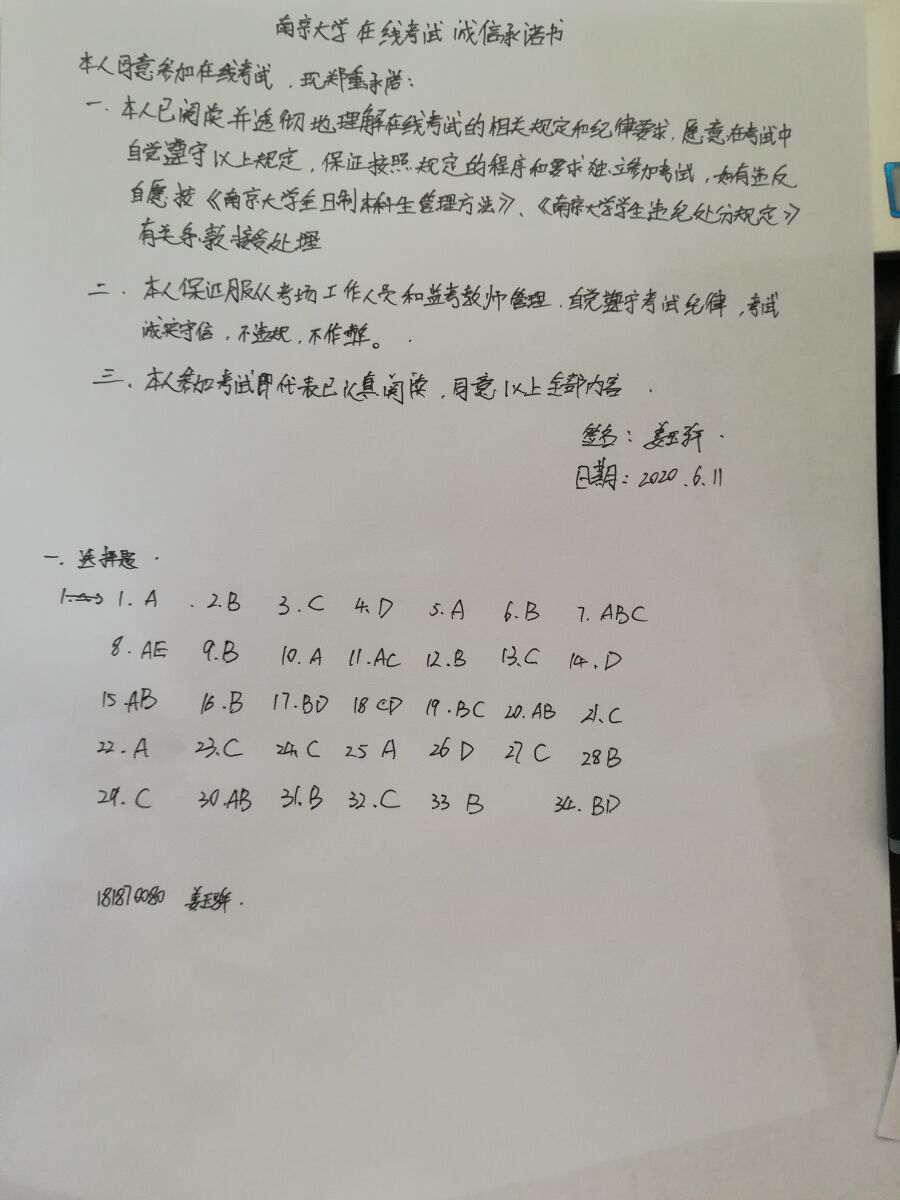 南京大学在线考试诚信承诺书
本人同意参加在线考试，现郑重承诺：
一、本人已阅读并透彻地理解在线考试的相关规定和纪律要求，愿意在考试中
自觉遵守以上规定，保证按照规定的程序和要求独立参加考试，如有违反
自愿按《南京大学全日制本科生管理方法》、《南京大学学生违纪处分规定》
有关条款接受处理
二、本人保证服从考场工作人员和监考教师管理，自觉遵守考试纪律，考试
诚实守信，不违规，不作弊。
三、本人参加考试即代表已认真阅读，同意以上全部内容．
签名：姜玉
日期：2020.6.11
一、选择题．
1.A 2.B 3.C 4.D 5.A 6.B 7.ABC
8.AE 9.B 10.A 11.AC 12.B 13.C 14.D
15 AB 16.B 17.BD 18 CD 19.BC 20.AB 21.C
22.A 23.C 24.C 25 A 26 D 27 C 28 B
29.C 30.AB 31.B 32.C 33 B 34.BD
181870080 姜玉